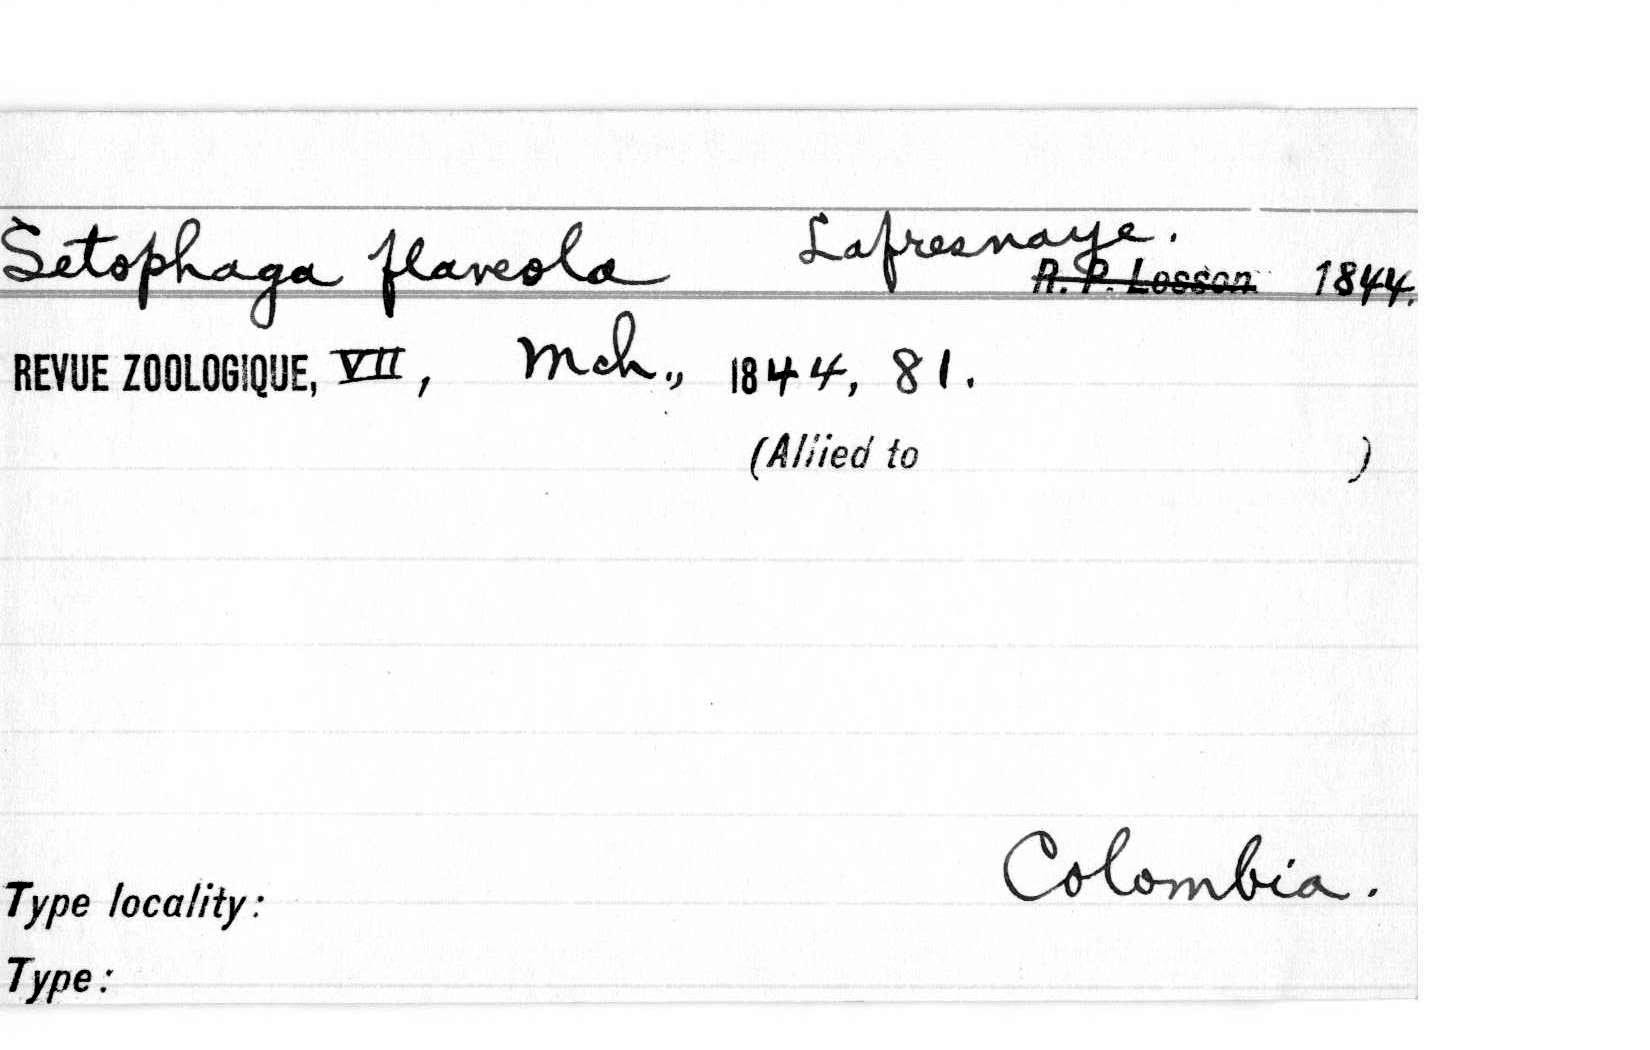 Setophaga flaveola Lafresnaye.
R. P. Lesson 1844.
REVUE ZOOLOGIQUE, VII, Mch., 1844, 81.
(Allied to )
Colombia.
Type locality:
Type: